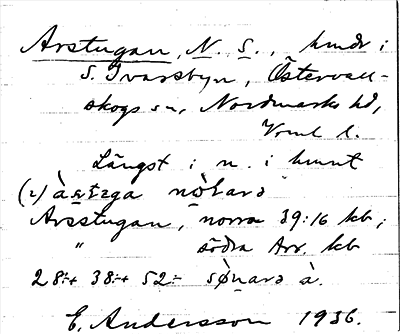 Arstugan, N. S., hmdr i
S. Ivarsbyn, Östervall-
skogs sn, Nordmarks hd,
Vrml l.
Längst i n. i hmnt
(2) àstɛga nòḷarə
Arsstugan, norra 39:16 kb;
" södra Arr. kb
28:+ 38:+ 52:- sø̀ṇarə à.
E. Andersson 1936.